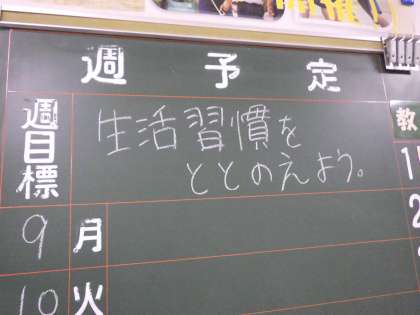 週予定
週目標
生活習慣を
ととのえよう。
教
9 月
1
10 火
2